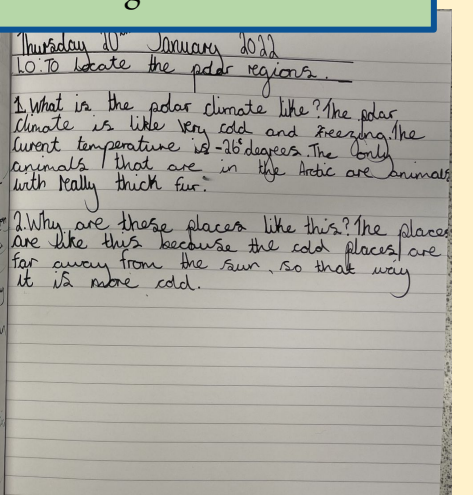 Thursday 20th January 2022
LO: To Locate the polar regions.
1. What is the polar climate like? The polar
climate is like very cold and freezing. The
curent temperature is -26° degrees. The only
animals that are in the Arctic are animals
with really thick fur.
2. Why are these places like this? The places
are like this because the cold places are
far away from the sun, so that way
it is more cold.